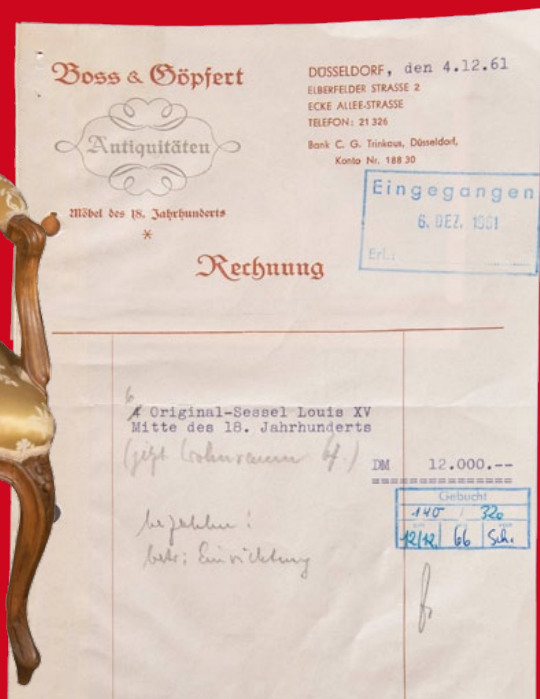 Boss & Göpfert
Antiquitäten
Möbel des 18. Jahrhunderts
DÜSSELDORF, den 4.12.61
ELBERFELDER STRASSE 2
ECKE ALLEE-STRASSE
TELEFON: 21 326
Bank C. G. Trinkaus, Düsseldorf,
Konto Nr. 188 30
Eingegangen
6. DEZ. 1961
Erl.:
Rechnung
6
Original-Sessel Louis XV
Mitte des 18. Jahrhunderts
(jetzt Wohnraum
DM 12.000.--
Gebucht
140 / 320
12/12 66 Sch.
bezahlen!
betr; Einrichtung